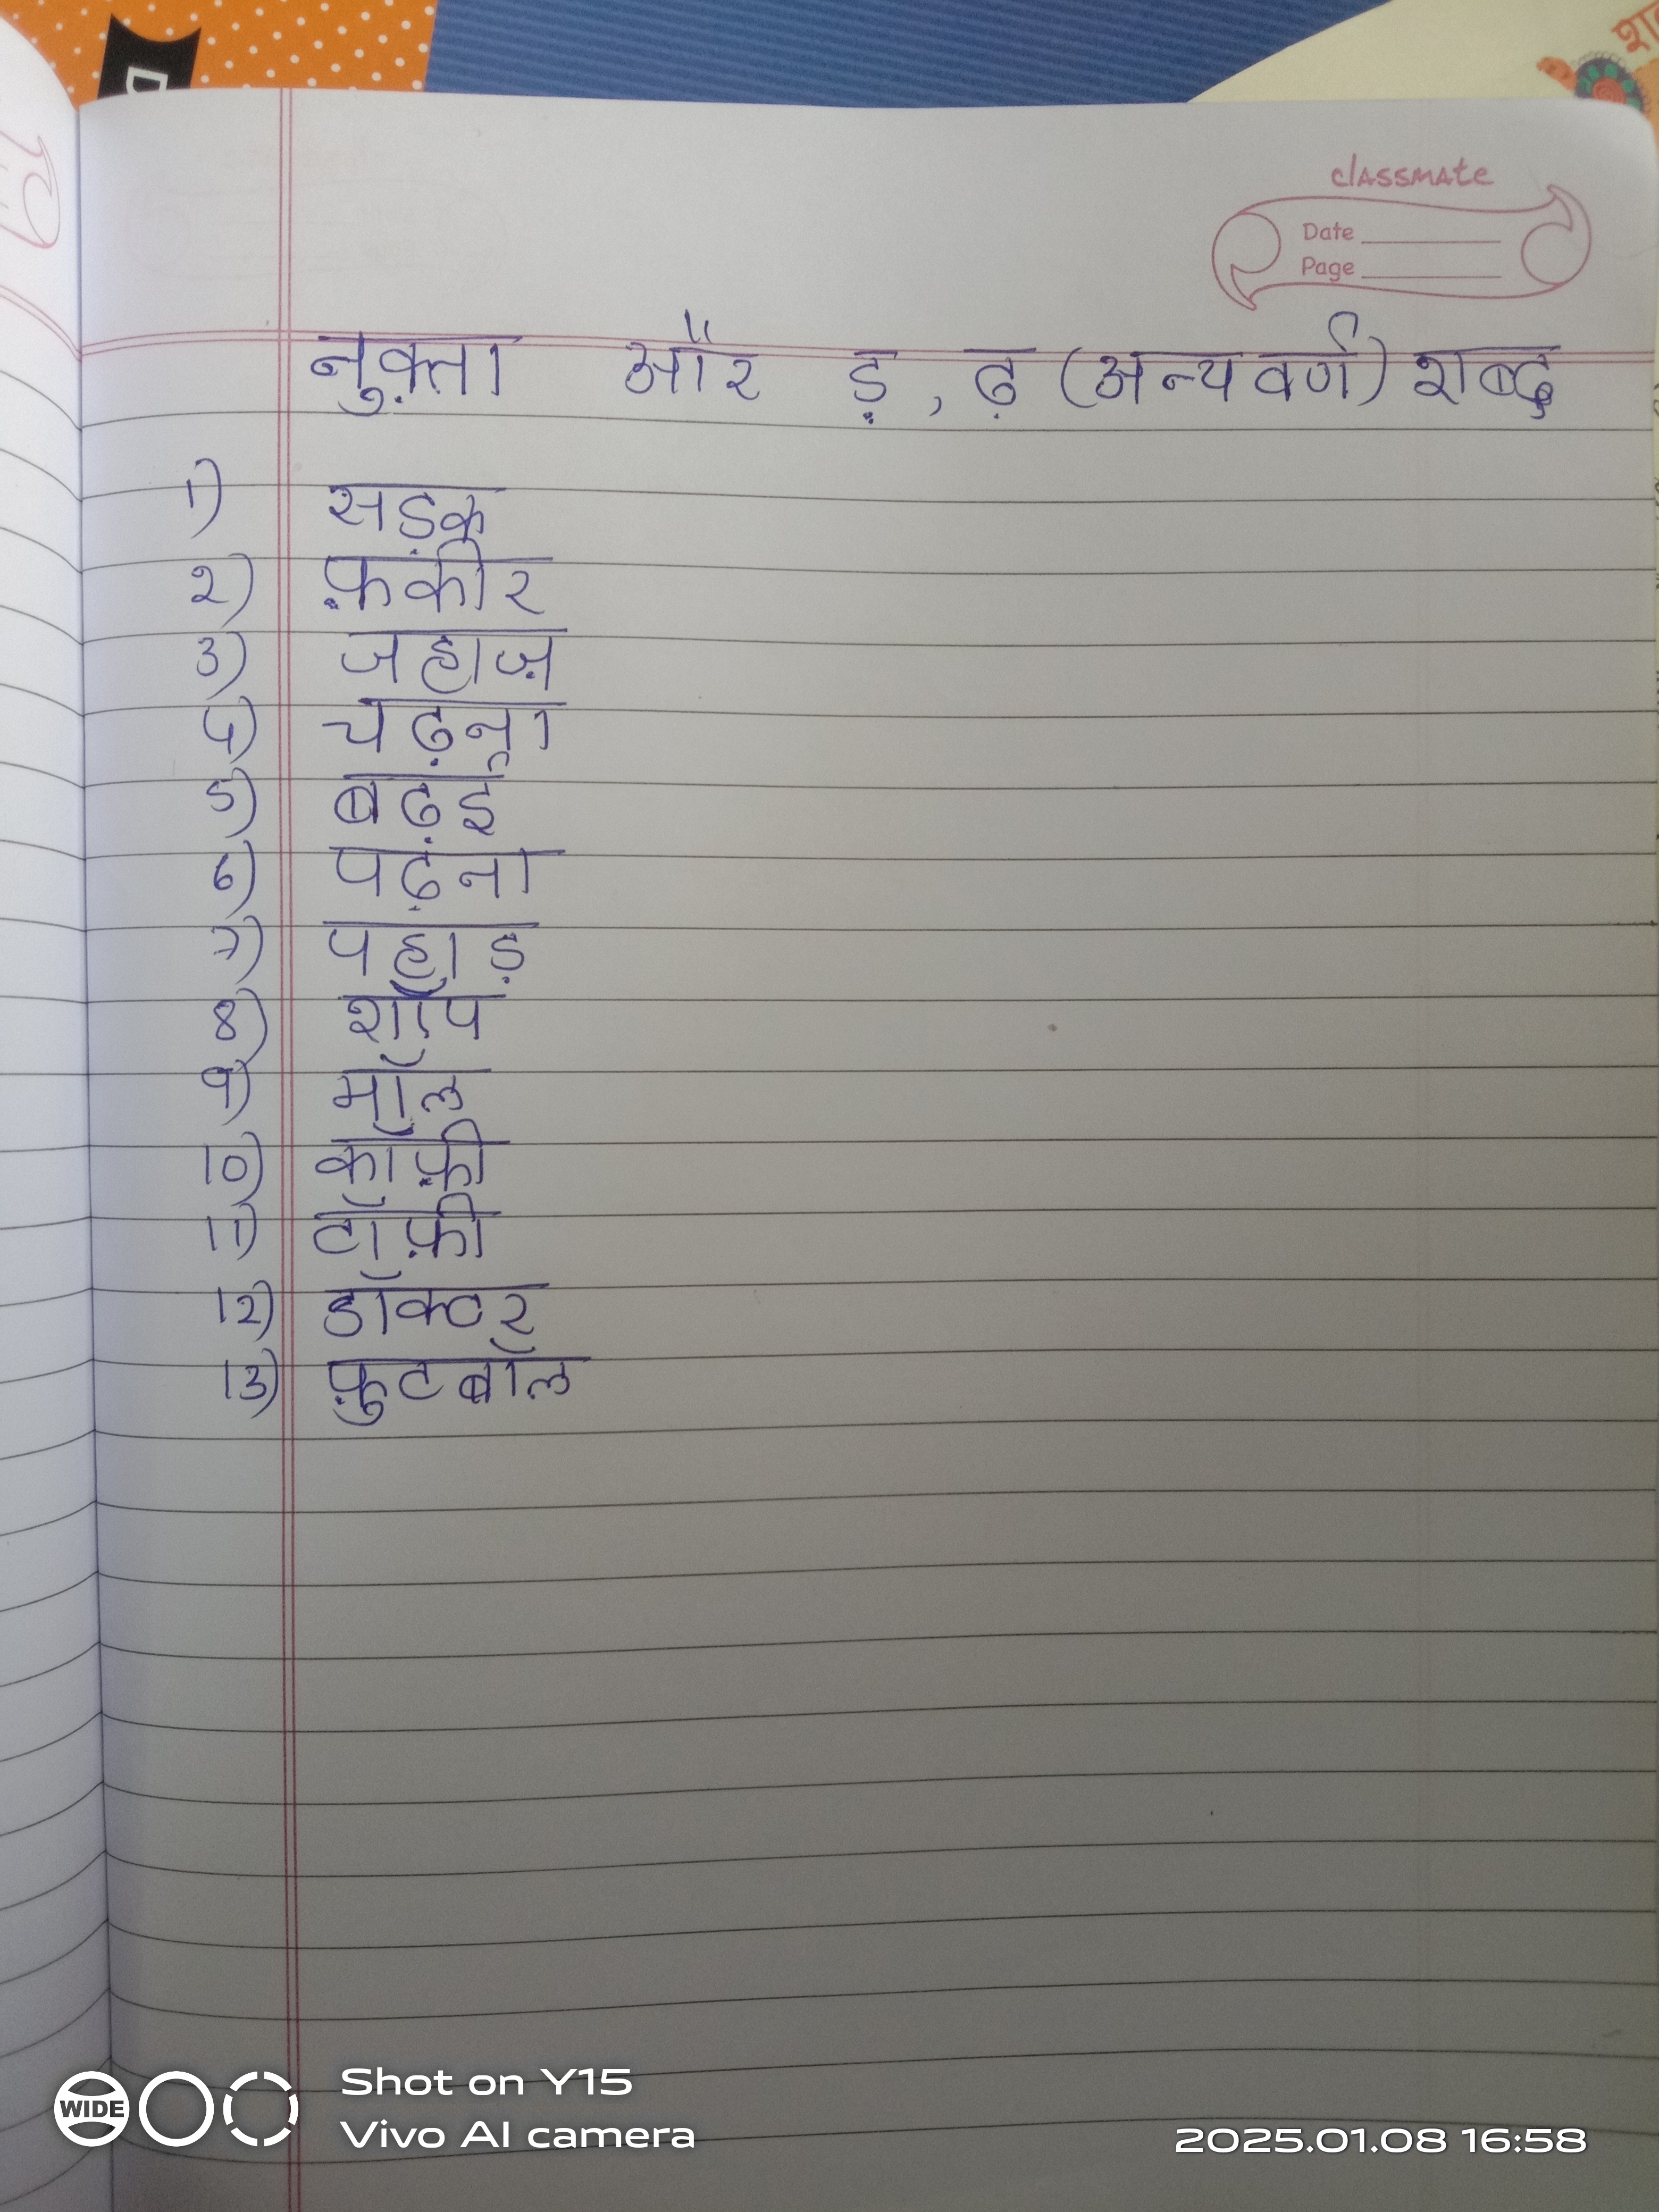 classmate
Date
Page
नुक़्ता और ड़, ढ़ (अन्य वर्ण) शब्द
1) सड़क
2) फ़कीर
3) जहाज़
4) चढ़ना
5) बढ़ई
6) पढ़ना
7) पहाड़
8) शॉप
9) मॉल
10) कॉफ़ी
11) टॉफ़ी
12) डॉक्टर
13) फ़ुटबॉल
WIDE
Shot on Y15
Vivo AI camera
2025.01.08 16:58